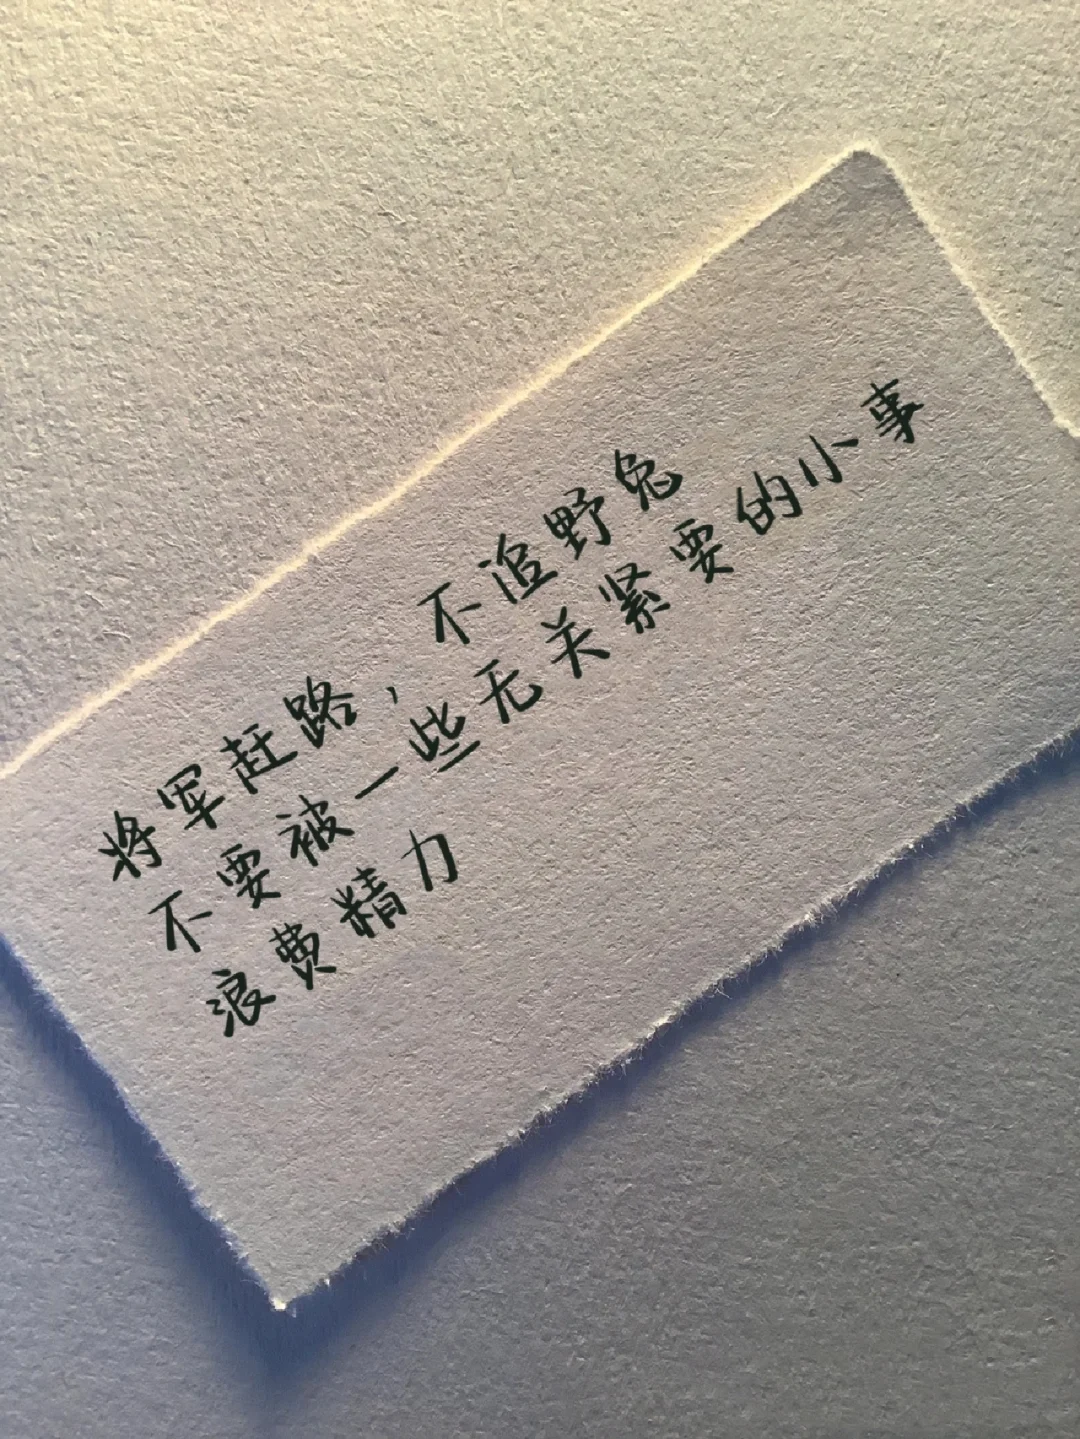 将军赶路，不追野兔
不要被一些无关紧要的小事
浪费精力